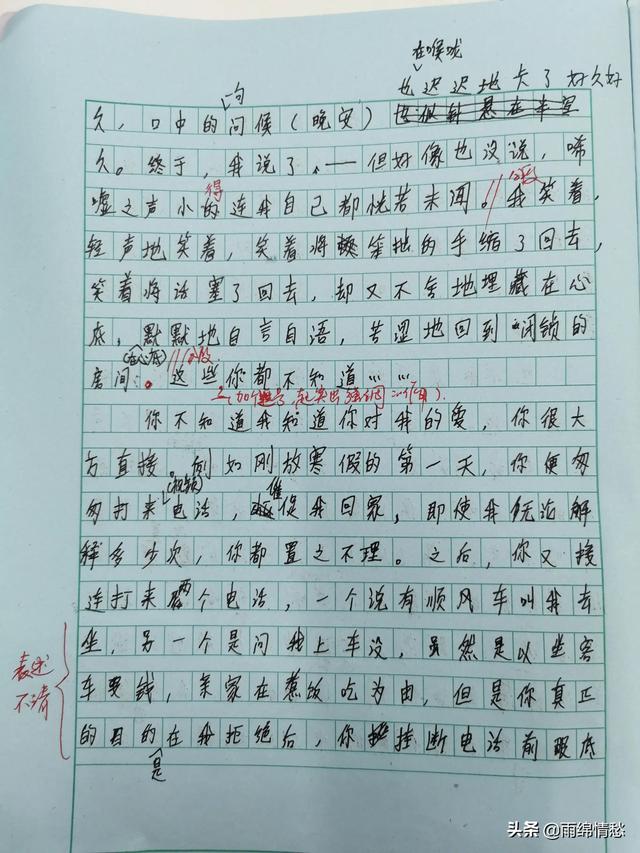 在喉咙
一句
也迟迟地卡了好久好
久，口中的问候（晚安）也似针悬在半空
久。终于，我说了。——但好像也没说，唏
得
分段
嘘之声小的连我自己都恍若未闻。//我笑着，
轻声地笑着，笑着将笨拙的手缩了回去，
笑着将话塞了回去，却又不舍地埋藏在心
底，默默地自言自语，苦涩地回到闭锁的
(在心底)
分段
房间：。//这些你都不知道……
(加个逗号 起突出强调作用)
你不知道我知道你对我的爱，你很大
方直接。例如刚放寒假的第一天，你便匆
催
匆打来电话，促我回家，即使我无论解
释多少次，你都置之不理。之后，你又接
连打来两个电话，一个说有顺风车叫我去
坐，另一个是问我上车没，虽然是以坐客
表述不清
车要钱，亲家在蒸饭吃为由，但是你真正
的目的在我拒绝后，你挂断电话前
是
头条 @雨绵情愁